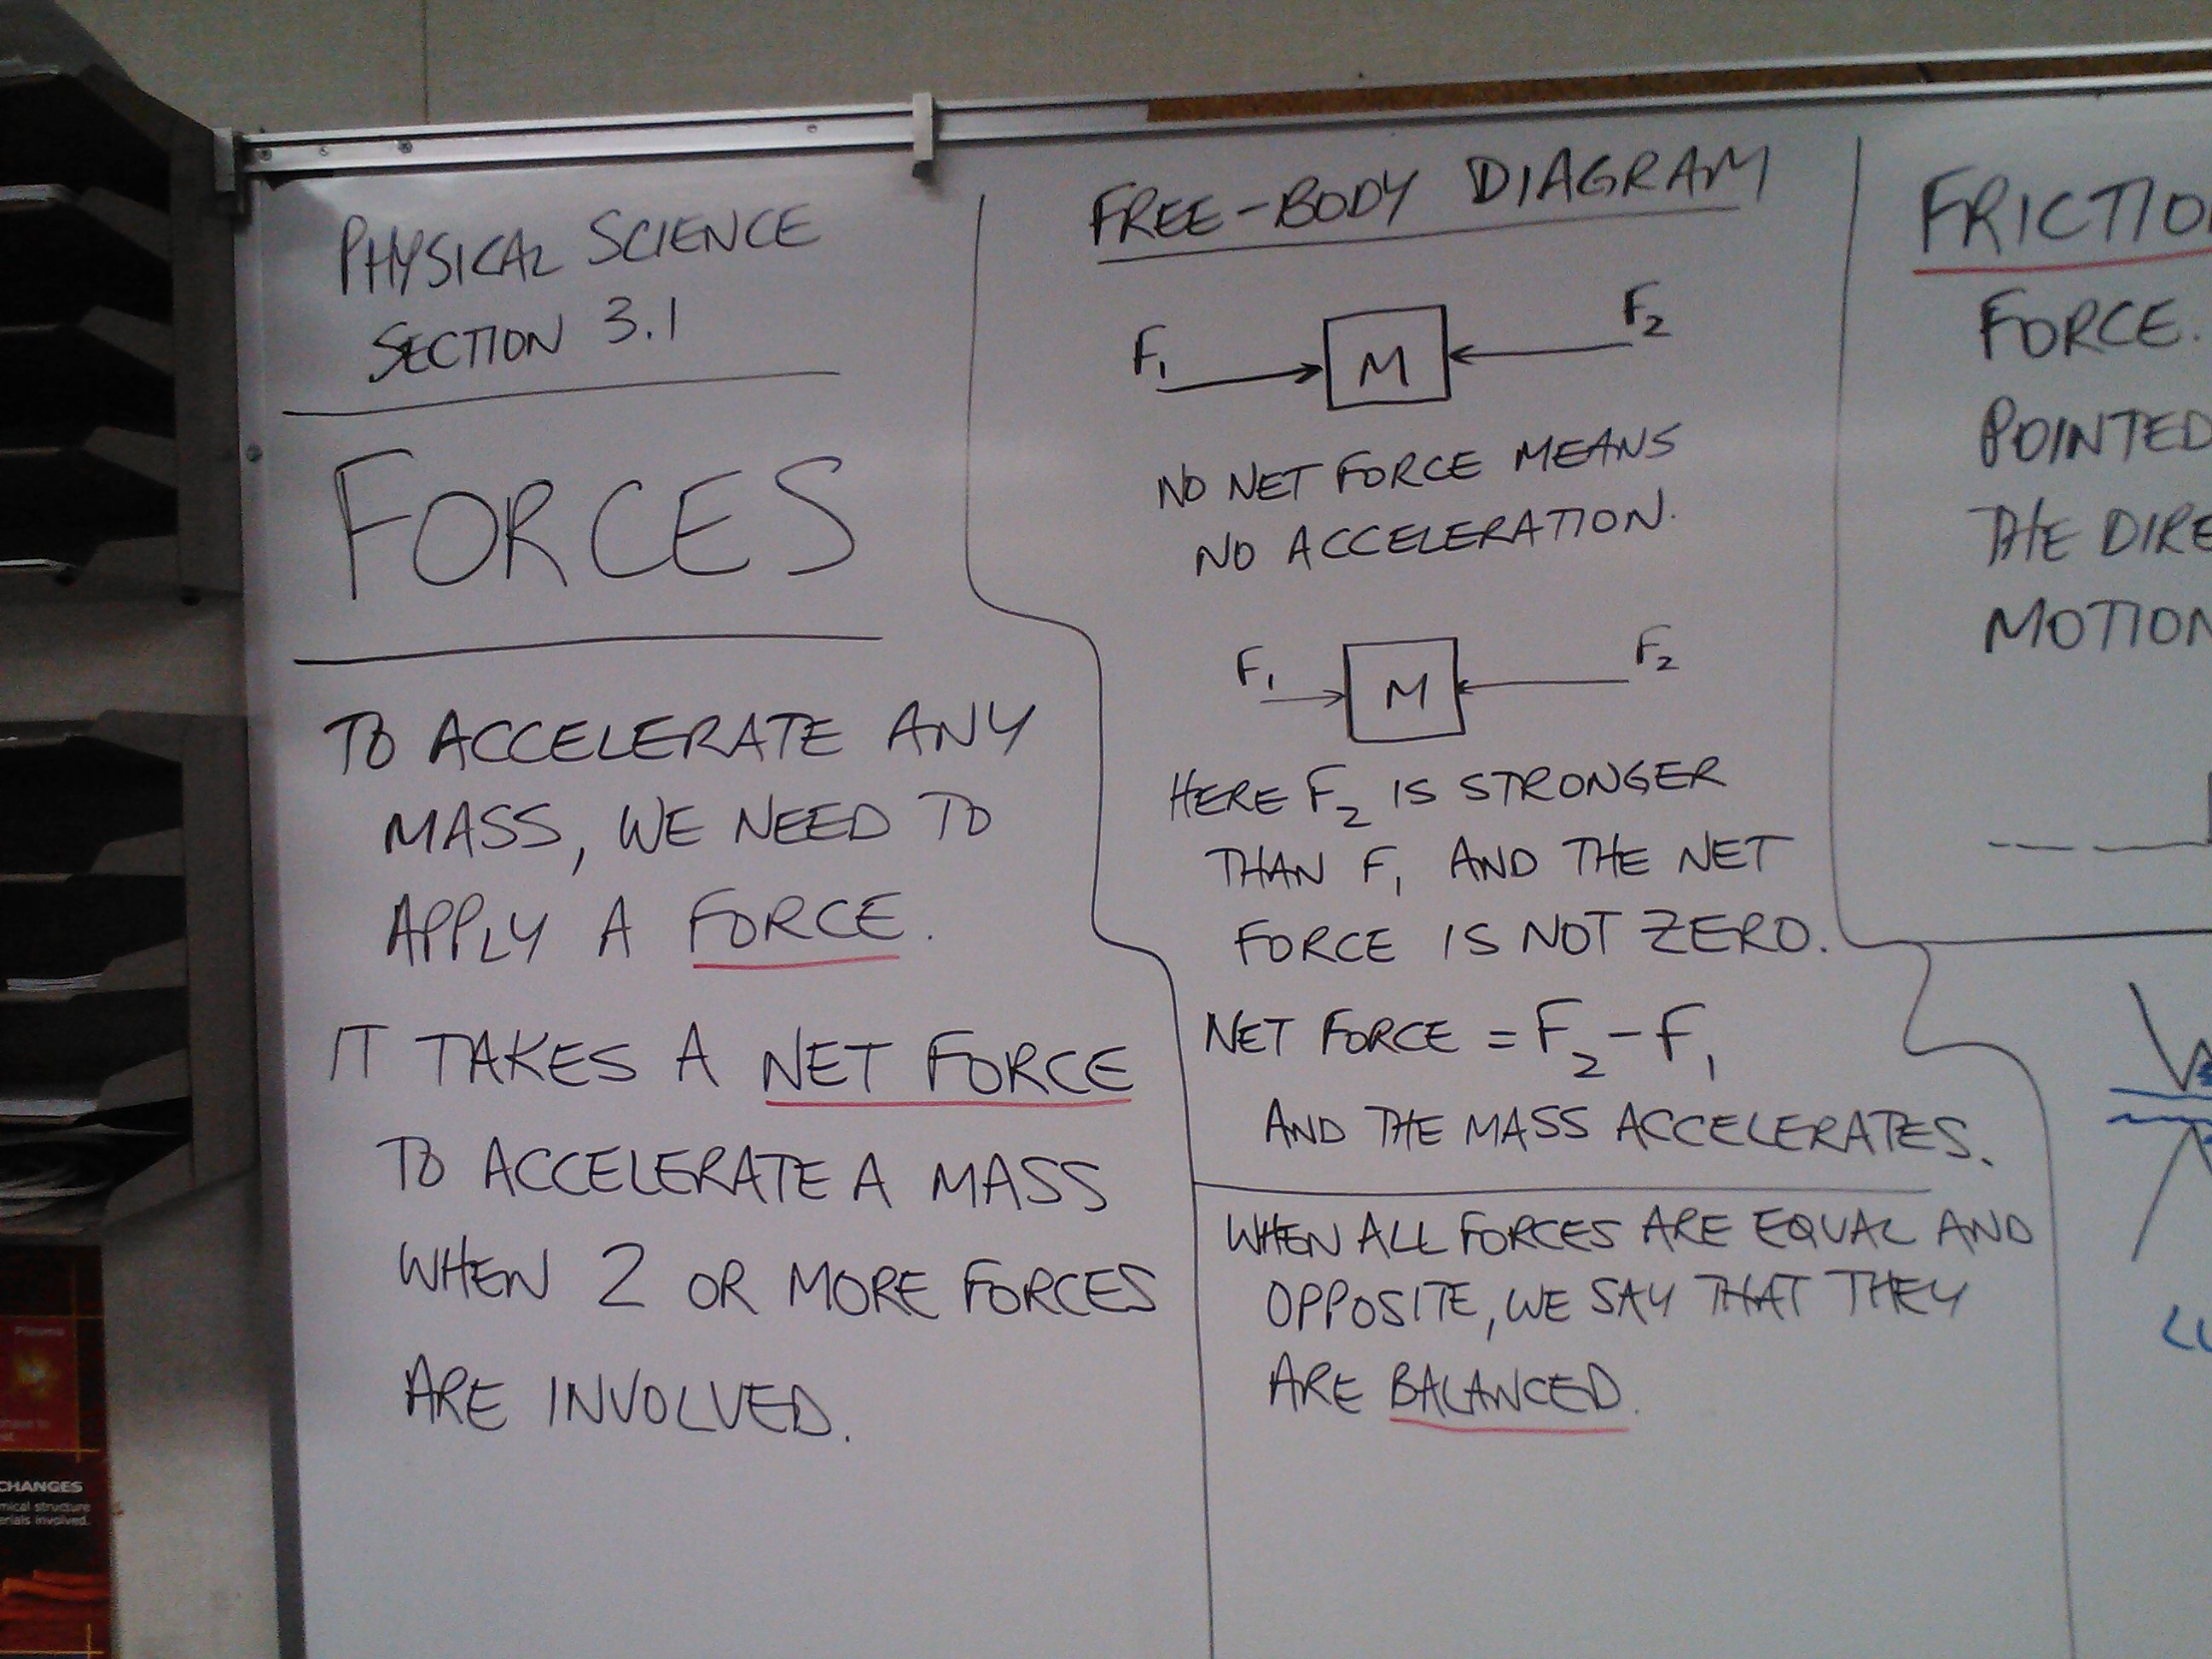 PHYSICAL SCIENCE
SECTION 3.1
FORCES
TO ACCELERATE ANY
MASS, WE NEED TO
APPLY A FORCE.
IT TAKES A NET FORCE
TO ACCELERATE A MASS
WHEN 2 OR MORE FORCES
ARE INVOLVED.
FREE-BODY DIAGRAM
F₁ M F₂
NO NET FORCE MEANS
NO ACCELERATION.
F₁ M F₂
HERE F₂ IS STRONGER
THAN F₁ AND THE NET
FORCE IS NOT ZERO.
NET FORCE = F₂ - F₁
AND THE MASS ACCELERATES.
WHEN ALL FORCES ARE EQUAL AND
OPPOSITE, WE SAY THAT THEY
ARE BALANCED.
FRICTIO
FORCE.
POINTED
THE DIRE
MOTION
Plasma
CHANGES
mical structure
erials involved.